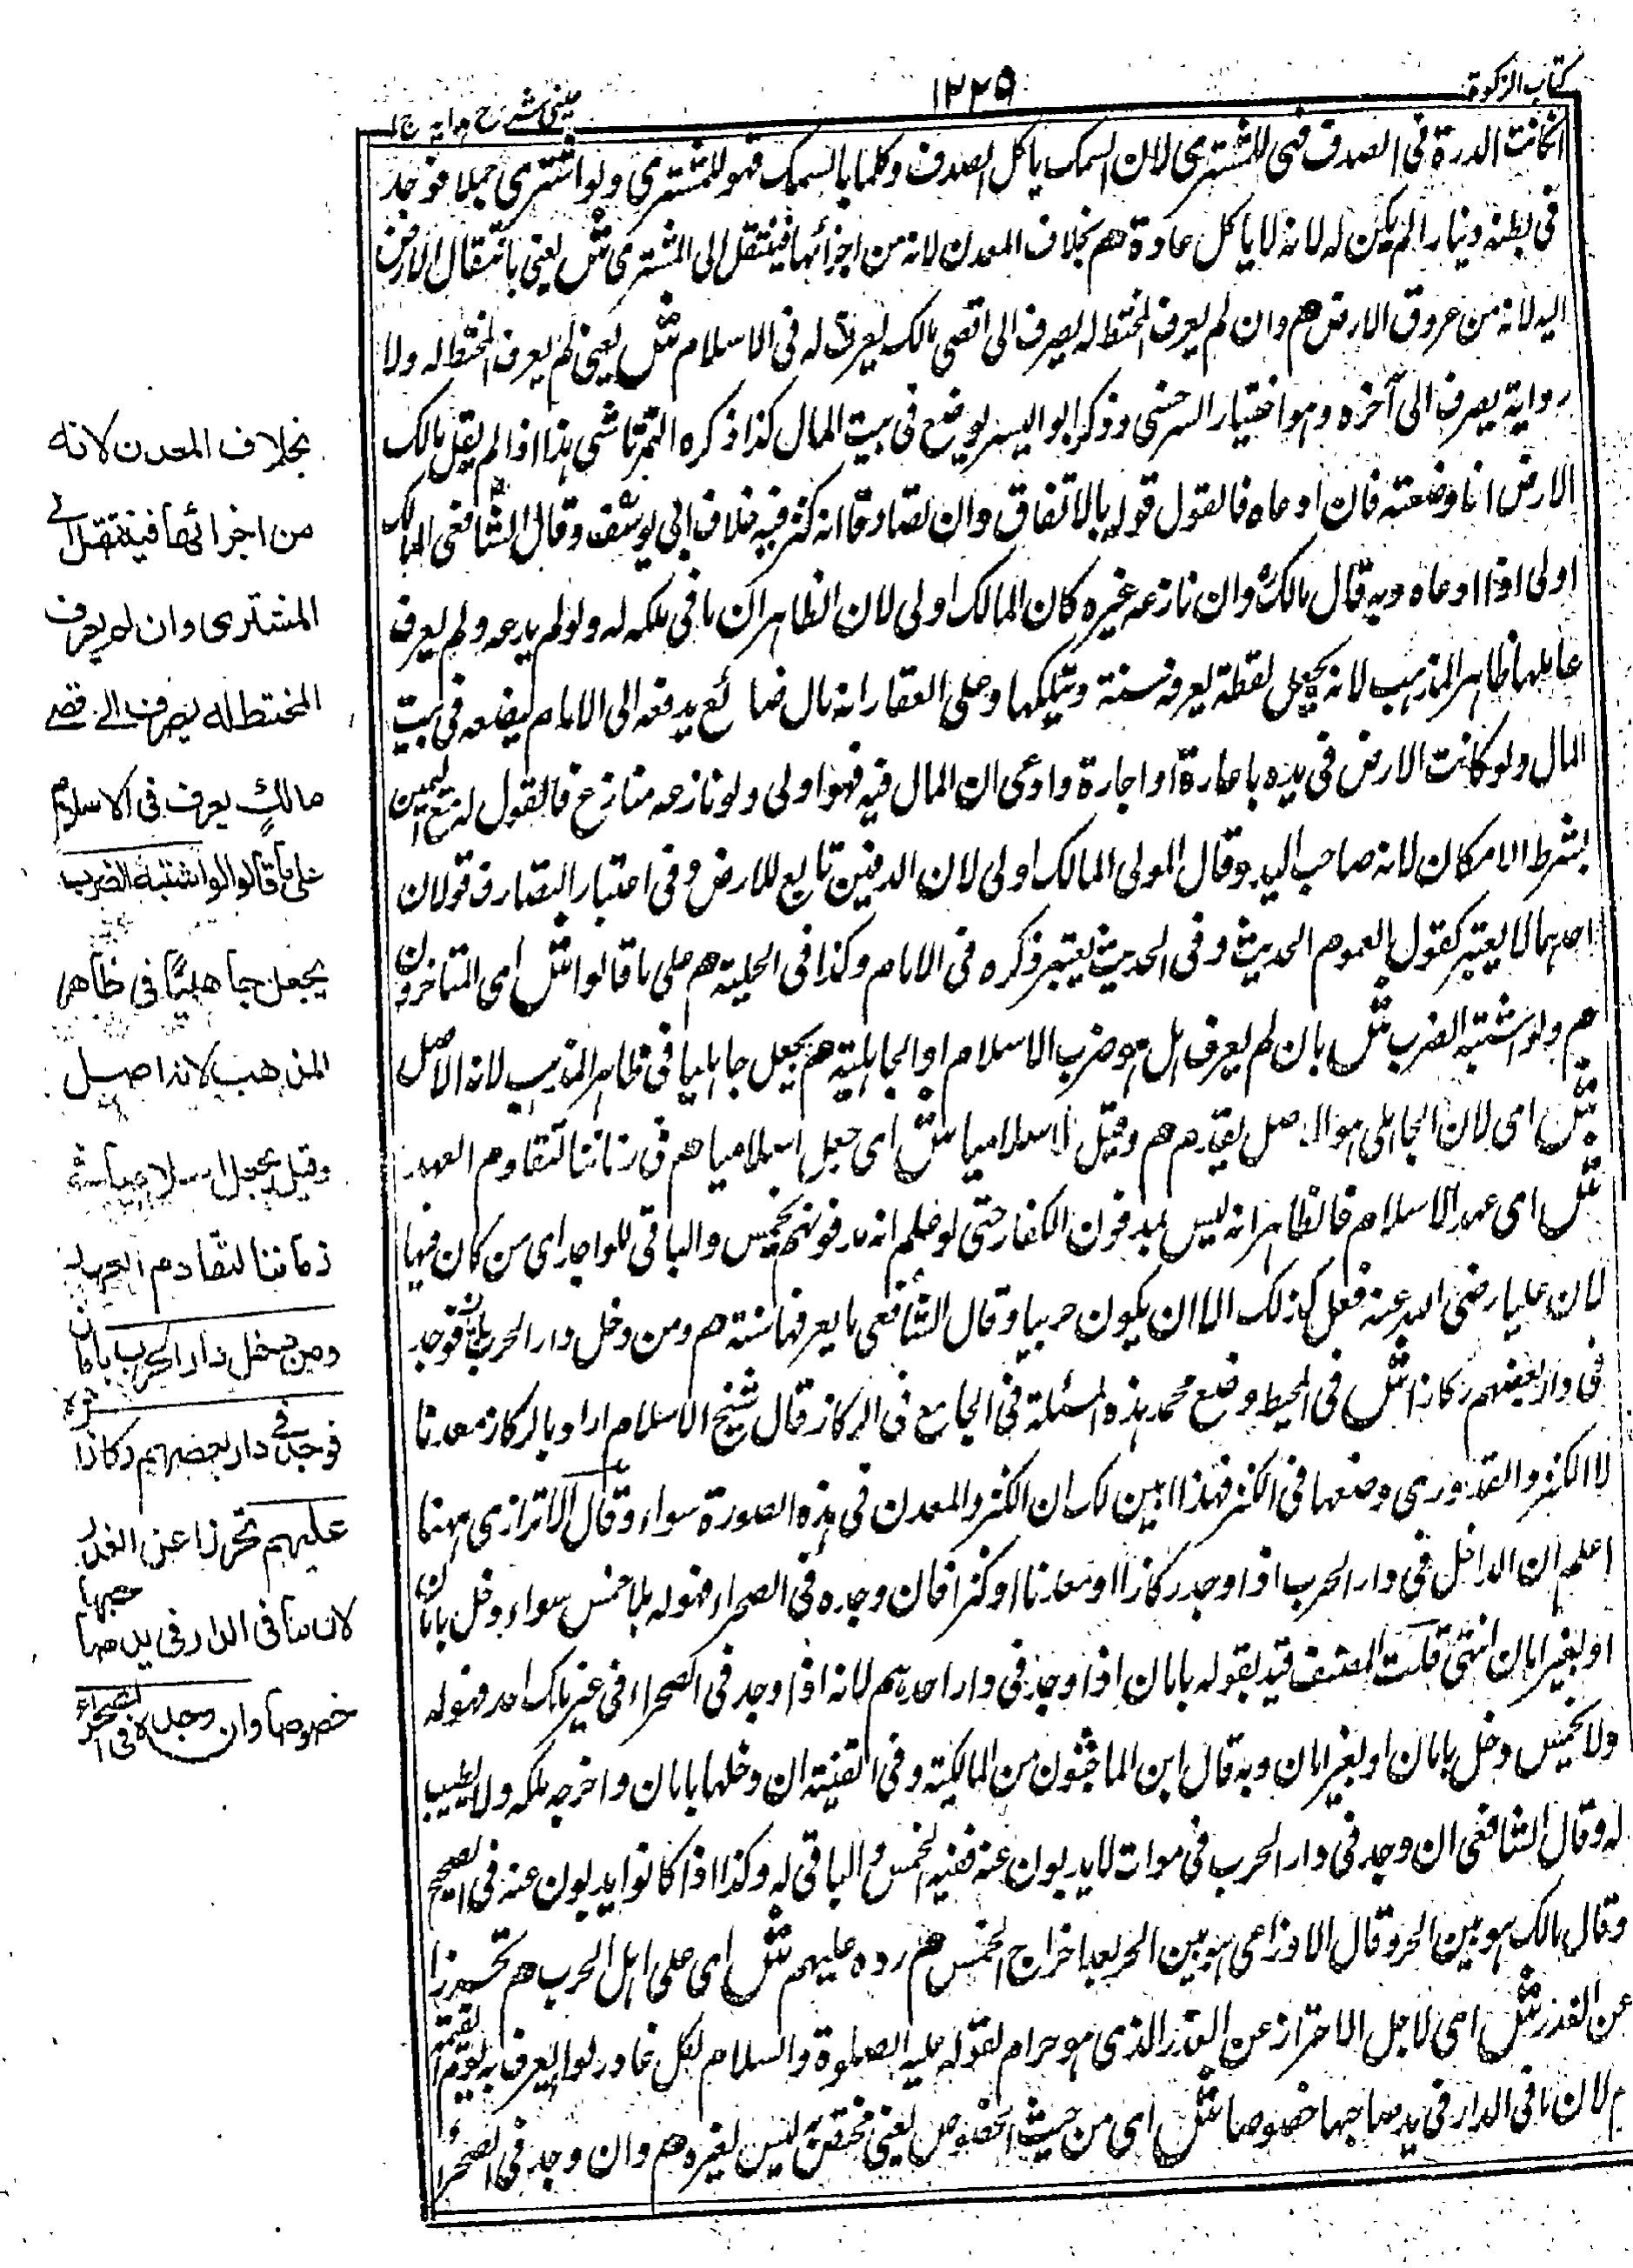 كتاب الزكوة
١٢٢٥
عينى شرح هدايه ج ١
انكانت الدرة فى الصدف فهى للمشترى لان السمك ياكل الصدف وكلما ياكله السمك فهو للمشترى ولو اشترى جملا فوجد
فى بطنه دينارا لم يكن له لانه لا ياكل عادة هم بخلاف المعدن لانه من اجزائها فينتقل الى المشترى ش يعنى بانتقال الارض
اليه لانه من عروق الارض هم وان لم يعرف المختط له يصرف الى اقصى مالك يعرف له فى الاسلام ش يعنى لم يعرف المختط له ولا
رواية يصرف الى آخره وهو اختيار السرخسى وذكر ابو اليسر يوضع فى بيت المال كذا ذكره التمرتاشى هذا اذا لم يقل مالك
الارض انا وضعته فان ادعاه فالقول قوله بالاتفاق وان تصادقا انه كنز فيه خلاف ابى يوسف وقال الشافعى المالك
اولى اذا ادعاه وبه قال مالك وان نازعه غيره كان المالك اولى لان الظاهر ان ما فى ملكه له ولو لم يدعه ولم يعرف
عاملها ظاهر المذهب لانه يجعل لقطة يعرفه سنة ويتملكها وعلى العقار انه مال ضائع يدفعه الى الامام ليضعه فى بيت
المال ولو كانت الارض فى يده باعارة او اجارة وادعى ان المال فيه فهو اولى ولو نازعه منازع فالقول له مع اليمين
بشرط الامكان لانه صاحب اليد وقال المولى المالك اولى لان الدفين تابع للارض وفى اعتبار التصارف قولان
احدهما لا يعتبر كقول العموم الحديث وفى الحديث يعتبر ذكره فى الامام وكذا فى الحلية هم على ما قالوا ش اى المتاخرون
هم ولو اشتبه الضرب ش بان لم يعرف هل هو ضرب الاسلام او الجاهلية هم يجعل جاهليا فى ظاهر المذهب لانه الاصل
ش اى لان الجاهلى هو الاصل لتقدمه هم وقيل اسلاميا ش اى جعل اسلاميا هم فى زماننا لتقادم العهد
ش اى عهد الاسلام فالظاهر انه ليس بمدفون الكفار حتى لو علم انه مدفونهم يخمس والباقى للواجد اى من كان فيها
لان عليا رضى الله عنه فعل كذلك الا ان يكون حربيا وقال الشافعى ما يعرفها سنة هم ومن دخل دار الحرب بامان فوجد
فى دار بعضهم ركازا ش فى المحيط وضع محمد هذه المسئلة فى الجامع فى الركاز قال شيخ الاسلام اراد بالركاز معدنا
لا الكنز والقدورى وضعها فى الكنز فهذا ابين لك ان الكنز والمعدن فى هذه الصورة سواء وقال الاترازى ههنا
اعلم ان الداخل فى دار الحرب اذا وجد ركازا او معدنا او كنزا فان وجده فى الصحراء فهو له بلا خمس سواء دخل بامان
او بغير امان انتهى قلت المصنف قيد بقوله بامان اذا وجد فى دار احدهم لانه اذا وجد فى الصحراء فى غير ملك احد فهو له
ولا يخمس دخل بامان او بغير امان وبه قال ابن الماجشون من المالكية وفى القنية ان دخلها بامان واخرجه ملكه ولا يطيب
له وقال الشافعى ان وجد فى دار الحرب فى موات لا يدبون عنه ففيه الخمس والباقى له وكذا اذا كانوا يدبون عنه فى الصحيح
وقال مالك هو بين الحر وقال الاوزاعى هو بين الحر بعد اخراج الخمس هم رده عليهم ش اى على اهل الحرب هم تحرزا
عن الغدر ش اى لاجل الاحتراز عن الغدر الذى هو حرام لقوله عليه الصلوة والسلام لكل غادر لواء يعرف به يوم القيمة
م لان ما فى الدار فى يد صاحبها خصوصا ش اى من حيث الخصوص يعنى مختص به ليس لغيره هم وان وجد فى الصحراء
بخلاف المعدن لانه
من اجزائها فينتقل الى
المشترى وان لم يعرف
المختط له يصرف الى اقصى
مالك يعرف فى الاسلام
على ما قالوا ولو اشتبه الضرب
يجعل جاهليا فى ظاهر
المذهب لانه اصيل
وقيل يجعل اسلاميا فى
زماننا لتقادم العهد
ومن دخل دار الحرب بامان
فوجد فى دار بعضهم ركازا رده
عليهم تحرزا عن الغدر
لان ما فى الدار فى يد صاحبها
خصوصا وان وجده فى الصحراء